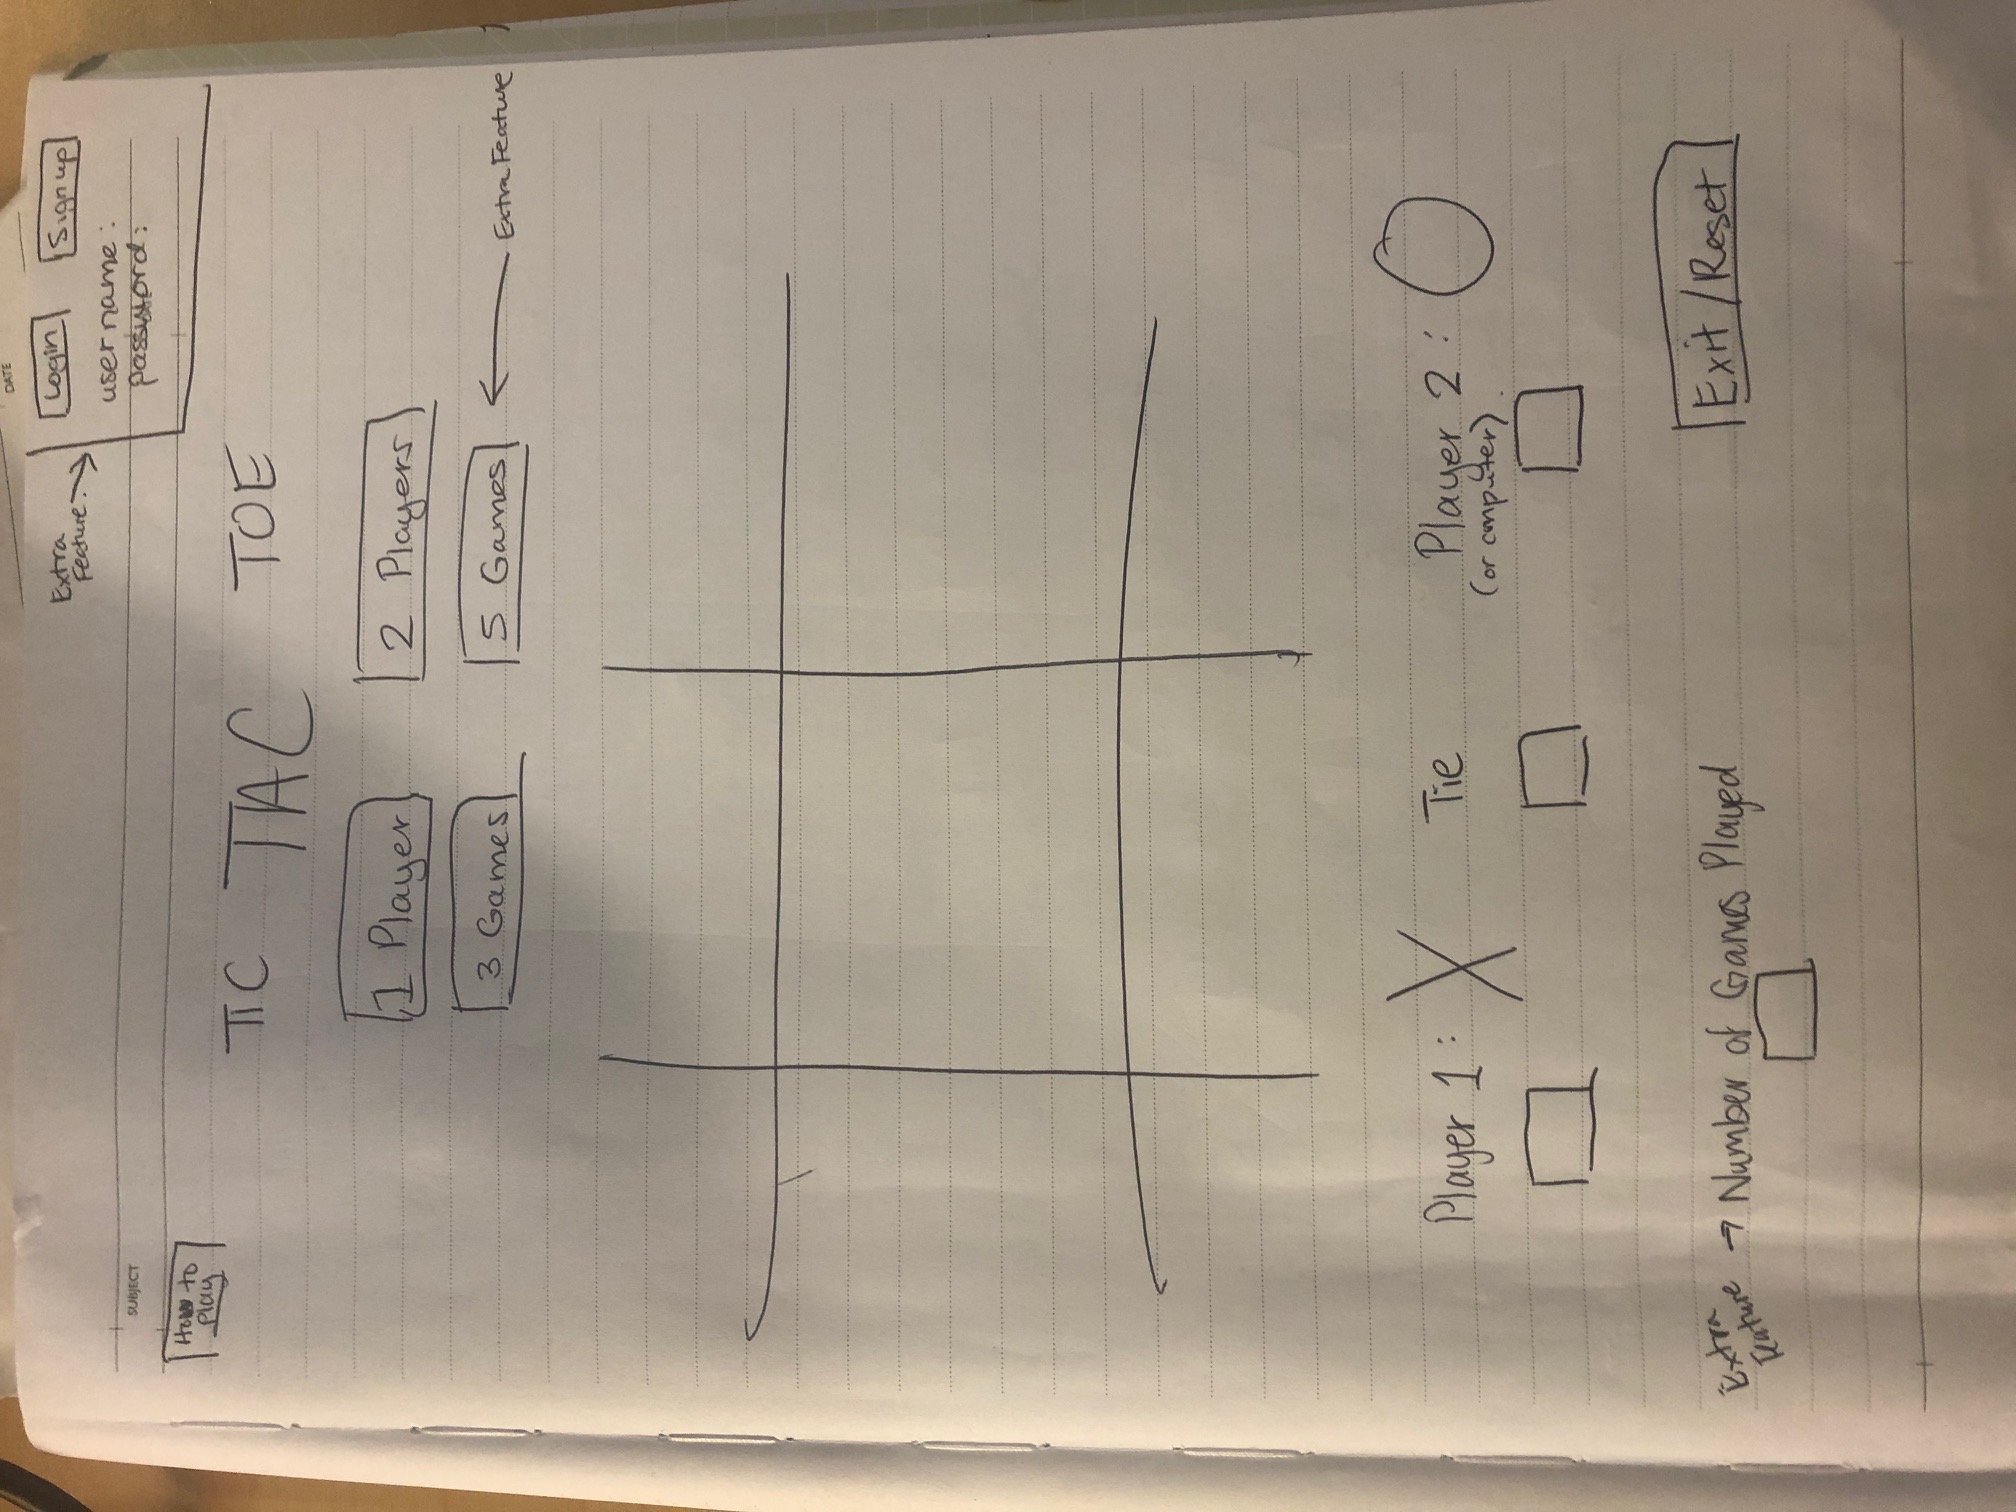 DATE
Extra
Feature.
Login
Sign up
username:
password:
SUBJECT
How to
play
TIC TAC TOE
1 Player
2 Players
3 Games
5 Games
Extra Feature
Player 1: X
Tie
Player 2: O
(or computer).
Extra
Feature
Number of Games Played
Exit/Reset